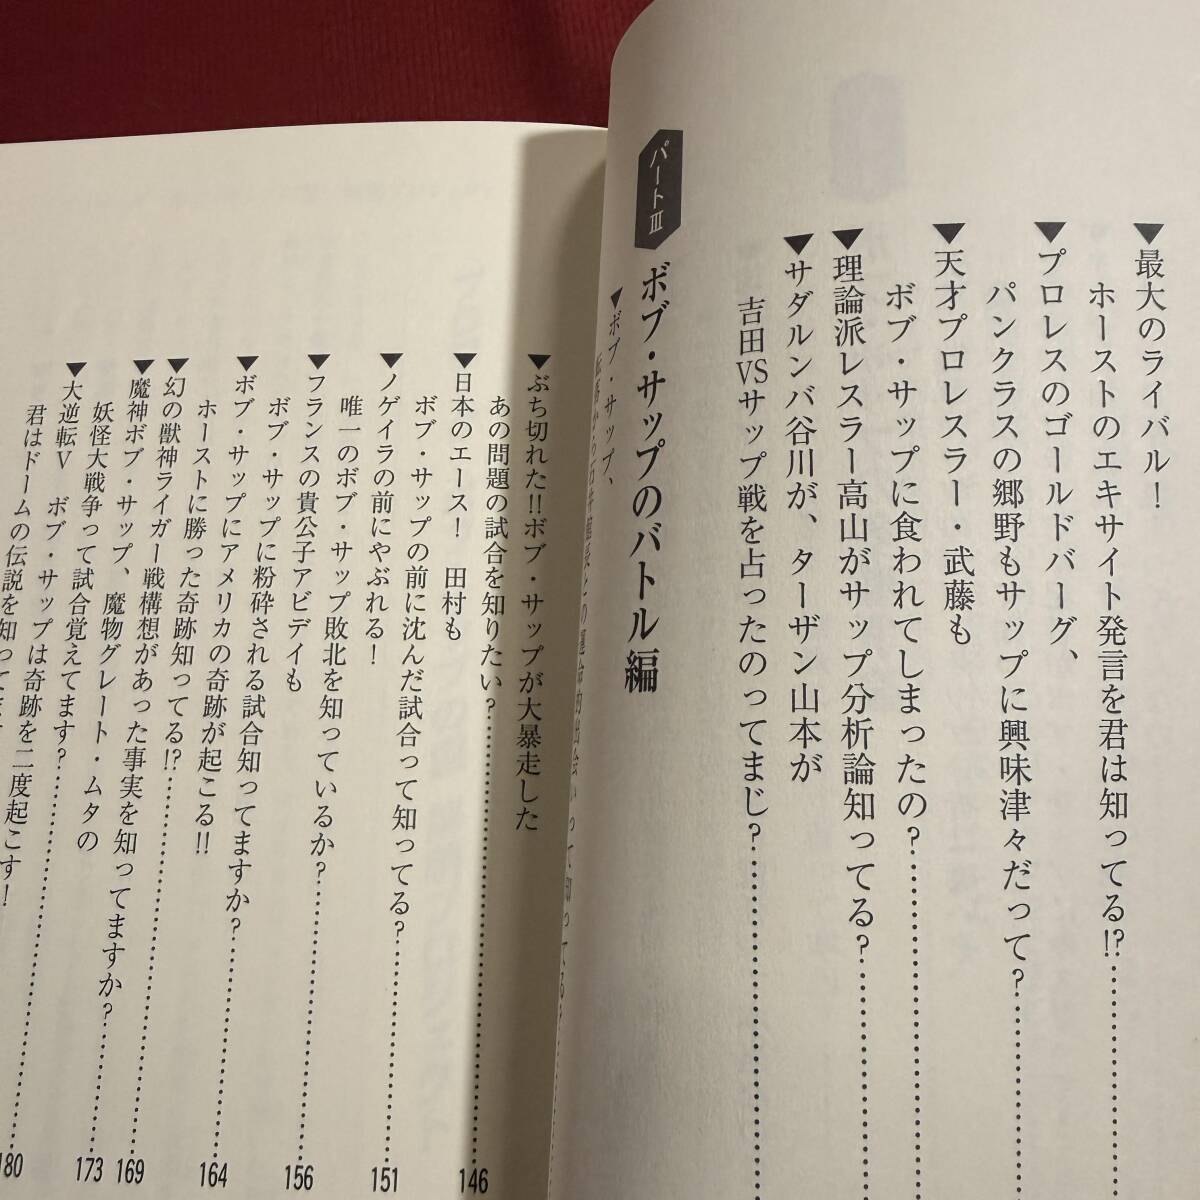 ▼最大のライバル！
ホーストのエキサイト発言を君は知ってる!?
▼プロレスのゴールドバーグ、
パンクラスの郷野もサップに興味津々だって？
▼天才プロレスラー・武藤も
ボブ・サップに食われてしまったの？
▼理論派レスラー高山がサップ分析論知ってる？
▼サダルンバ谷川が、ターザン山本が
吉田VSサップ戦を占ったのってまじ？
パートⅢ
ボブ・サップのバトル編
▼ボブ・サップ、
石井館長との運命的出会いって知ってる
▼ぶち切れた!!ボブ・サップが大暴走した
あの問題の試合を知りたい？ 146
▼日本のエース！　田村も
ボブ・サップの前に沈んだ試合って知ってる？ 151
▼ノゲイラの前にやぶれる！
唯一のボブ・サップ敗北を知っているか？ 156
▼フランスの貴公子アビディも
ボブ・サップに粉砕される試合知ってますか？ 164
▼ボブ・サップにアメリカの奇跡が起こる!!
ホーストに勝った奇跡知ってる!? 169
▼幻の獣神ライガー戦構想があった事実を知ってますか？ 173
▼魔神ボブ・サップ、魔物グレート・ムタの
妖怪大戦争って試合覚えてます？ 180
▼大逆転Ｖ　ボブ・サップは奇跡を二度起こす！
君はドームの伝説を知って